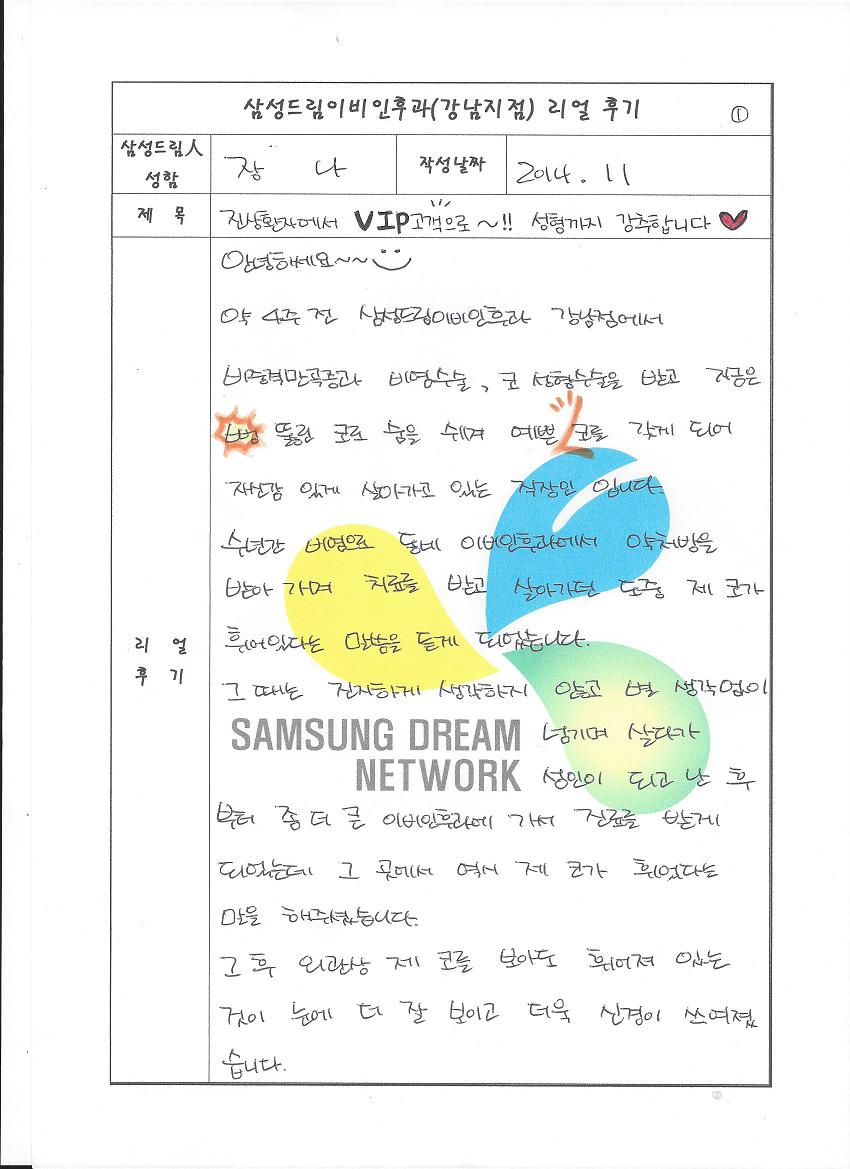 삼성드림이비인후과(강남지점) 리얼 후기 ①
삼성드림人 성함
장 나
작성날짜
2014. 11
제 목
진상환자에서 VIP고객으로~!! 성형까지 강추합니다 ♥
리 얼 후 기
안녕하세요~~
약 4주 전 삼성드림이비인후과 강남점에서
비중격만곡증과 비염수술, 코 성형수술을 받고 지금은
뻥 뚫림 코로 숨을 쉬며 예쁜 코를 갖게 되어
자신감 있게 살아가고 있는 직장인 입니다.
수년간 비염으로 동네 이비인후과에서 약처방을
받아 가며 치료를 받고 살아가던 도중 제 코가
휘어있다는 말씀을 듣게 되었습니다.
그 때는 진지하게 생각하지 않고 별 생각없이
SAMSUNG DREAM 넘기며 살다가
NETWORK 성인이 되고 난 후
부터 좀 더 큰 이비인후과에 가서 진료를 받게
되었는데 그 곳에서 역시 제 코가 휘었다는
말을 해주셨습니다.
그 후 외관상 제 코를 보아도 휘어져 있는
것이 눈에 더 잘 보이고 더욱 신경이 쓰여졌
습니다.